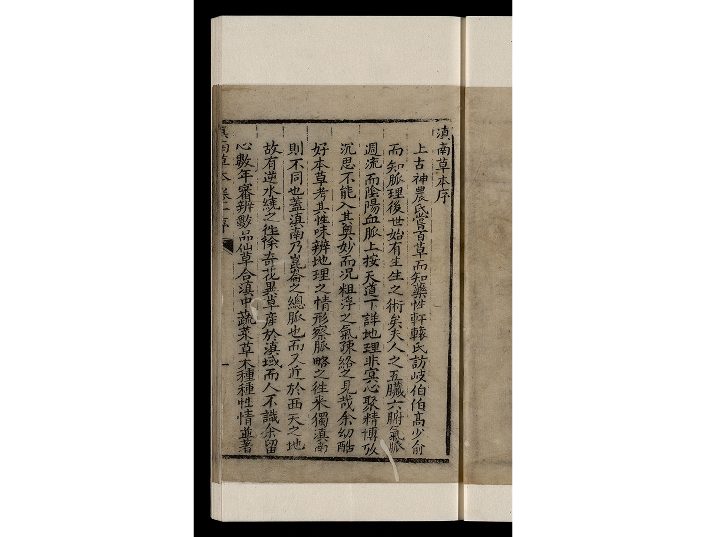 滇南草本序
上古神農氏嘗百草而知藥性軒轅氏訪岐伯伯高少俞
而知脈理後世始有生生之術矣夫人之五臟六腑氣脈
週流而陰陽血脈上按天道下詳地理非冥心聚精博攷
沉思不能入其奥妙而況粗浮之氣疎絡之見哉余幼酷
好本草考其性味辨地理之情形察脈略之往來獨滇南
則不同也蓋滇南乃崑崙之總脈也而又近於西天之地
故有逆水繞之徃徐奇花異草産於滇域而人不識余留
心數年審辨數品仙草合滇中蔬菜草木種種性情並著
滇南草本 卷一序
一